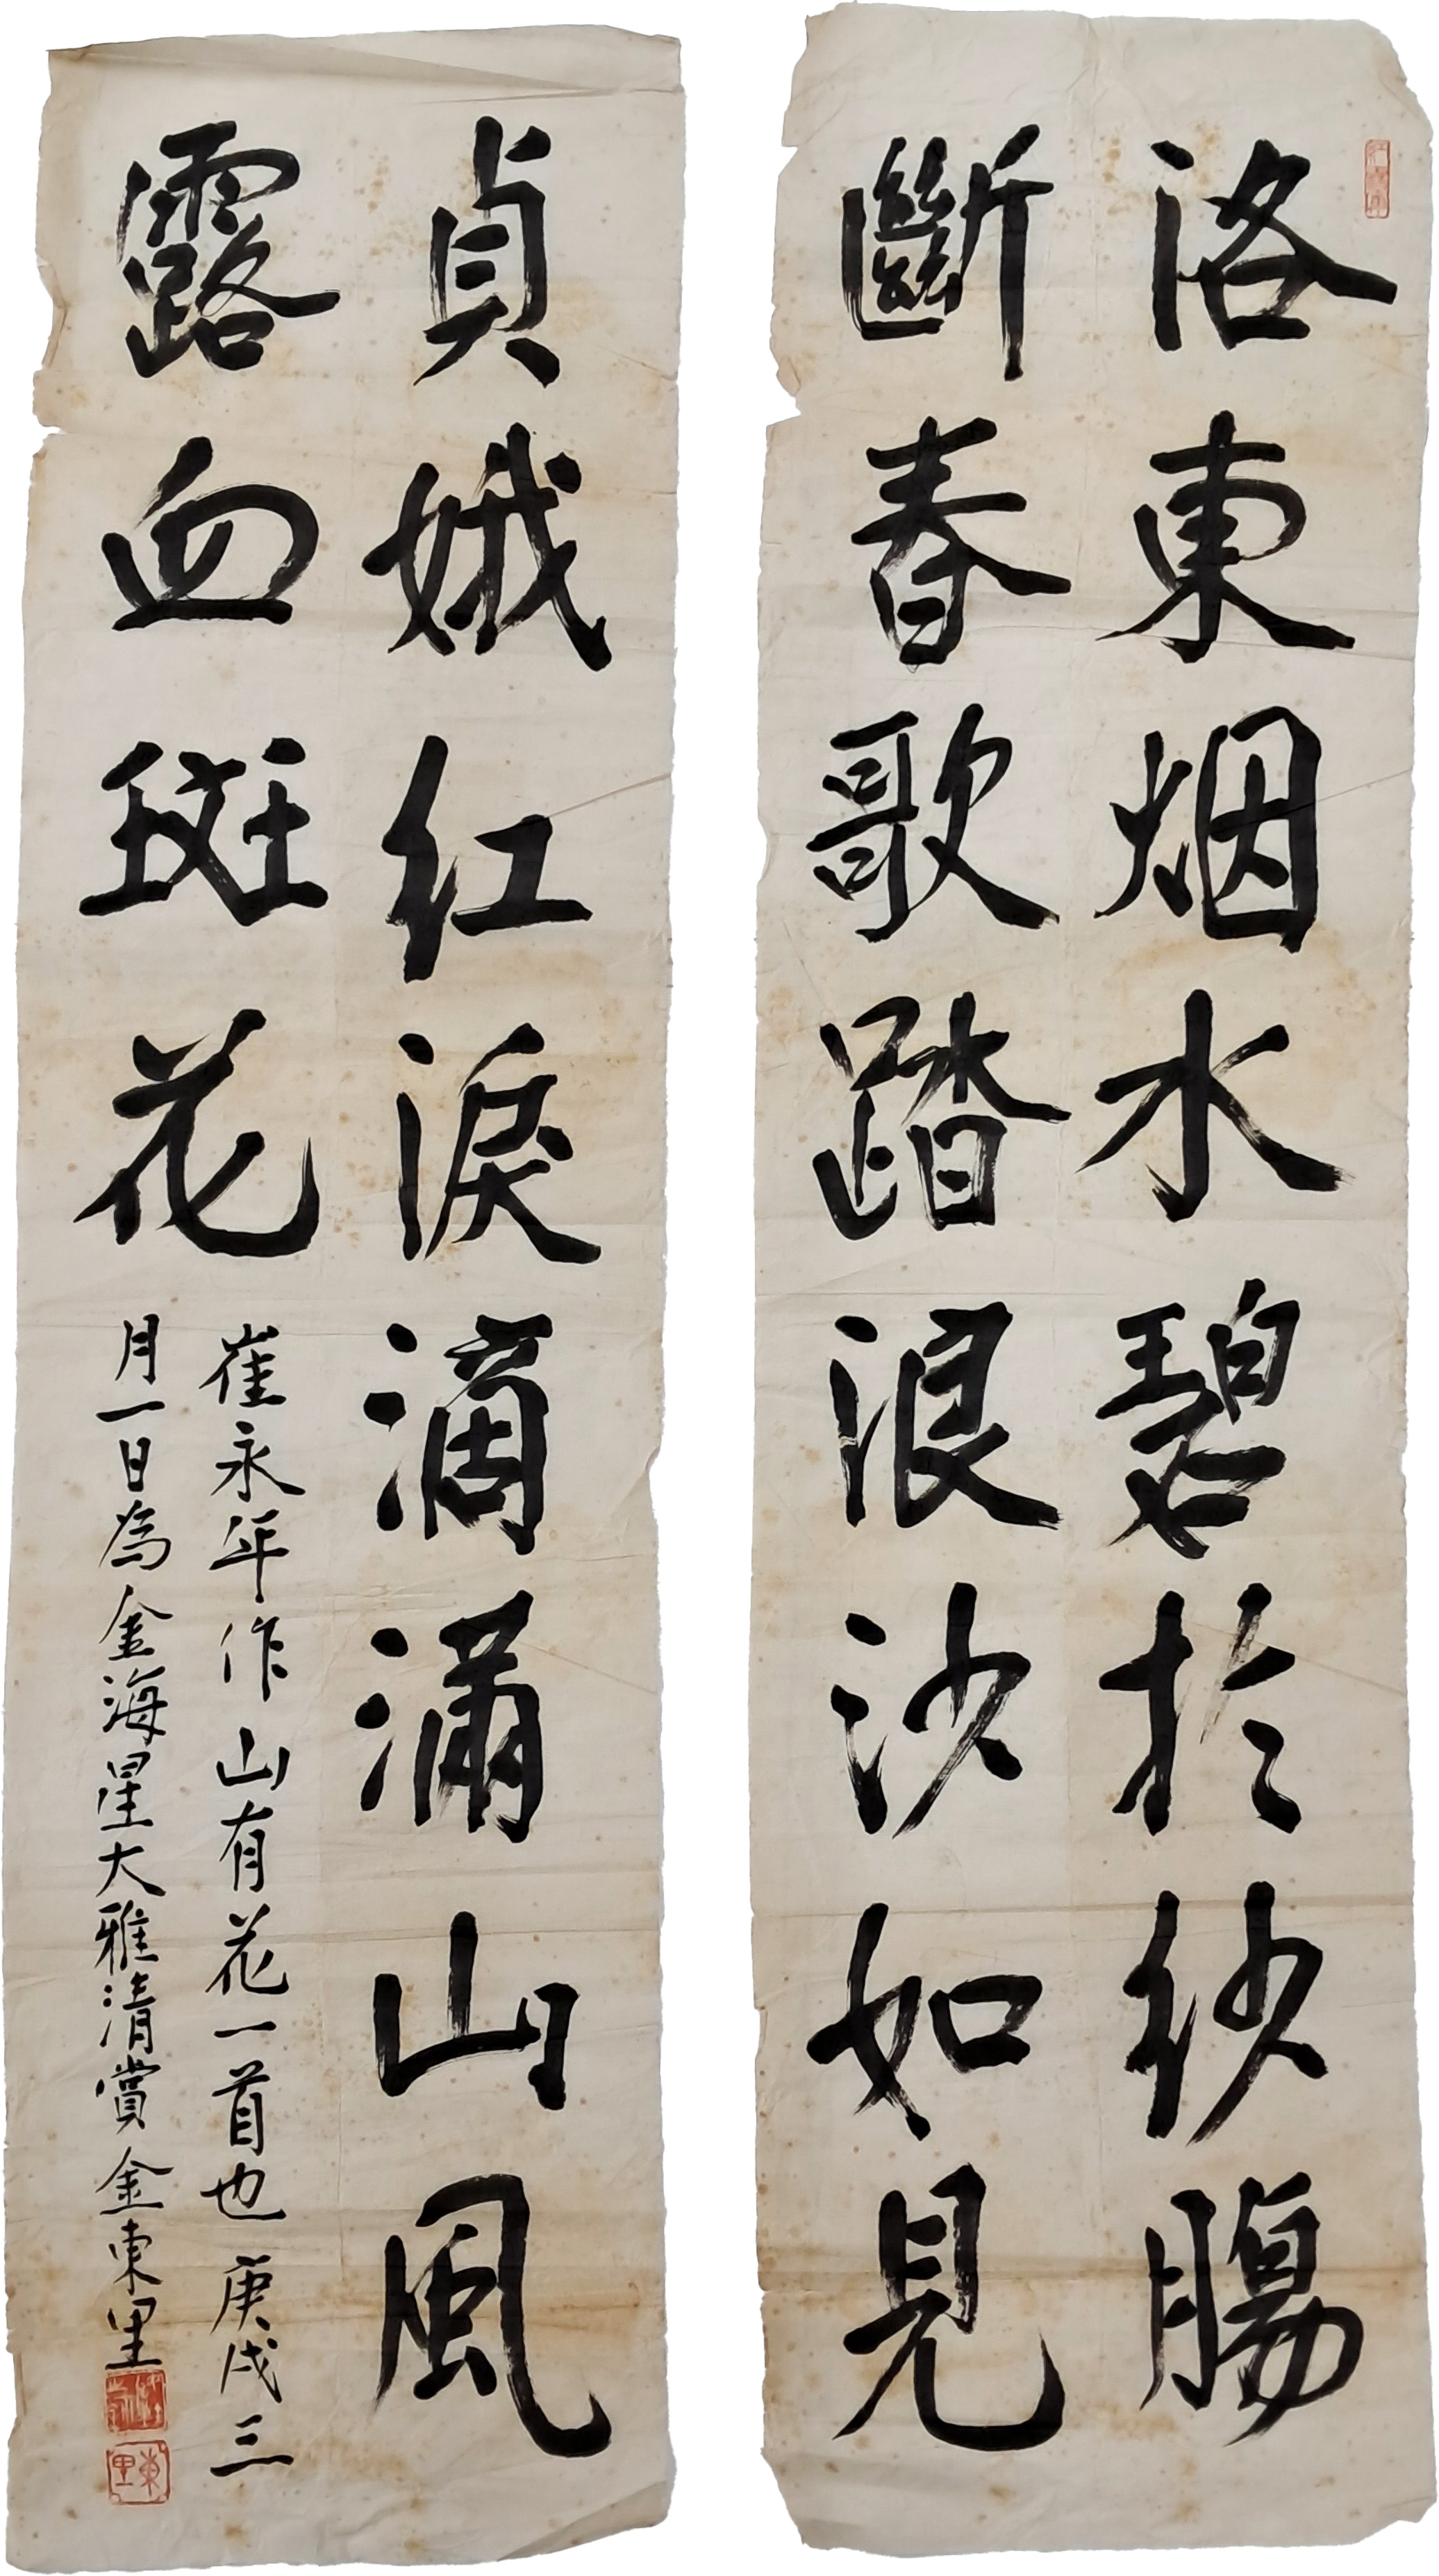 洛東烟水碧於紗腸
斷春歌踏浪沙如見
貞娥紅淚滴滿山風
露血斑花
崔永年作山有花一首也庚戌三
月一日為金海星大雅清賞金東里
東里